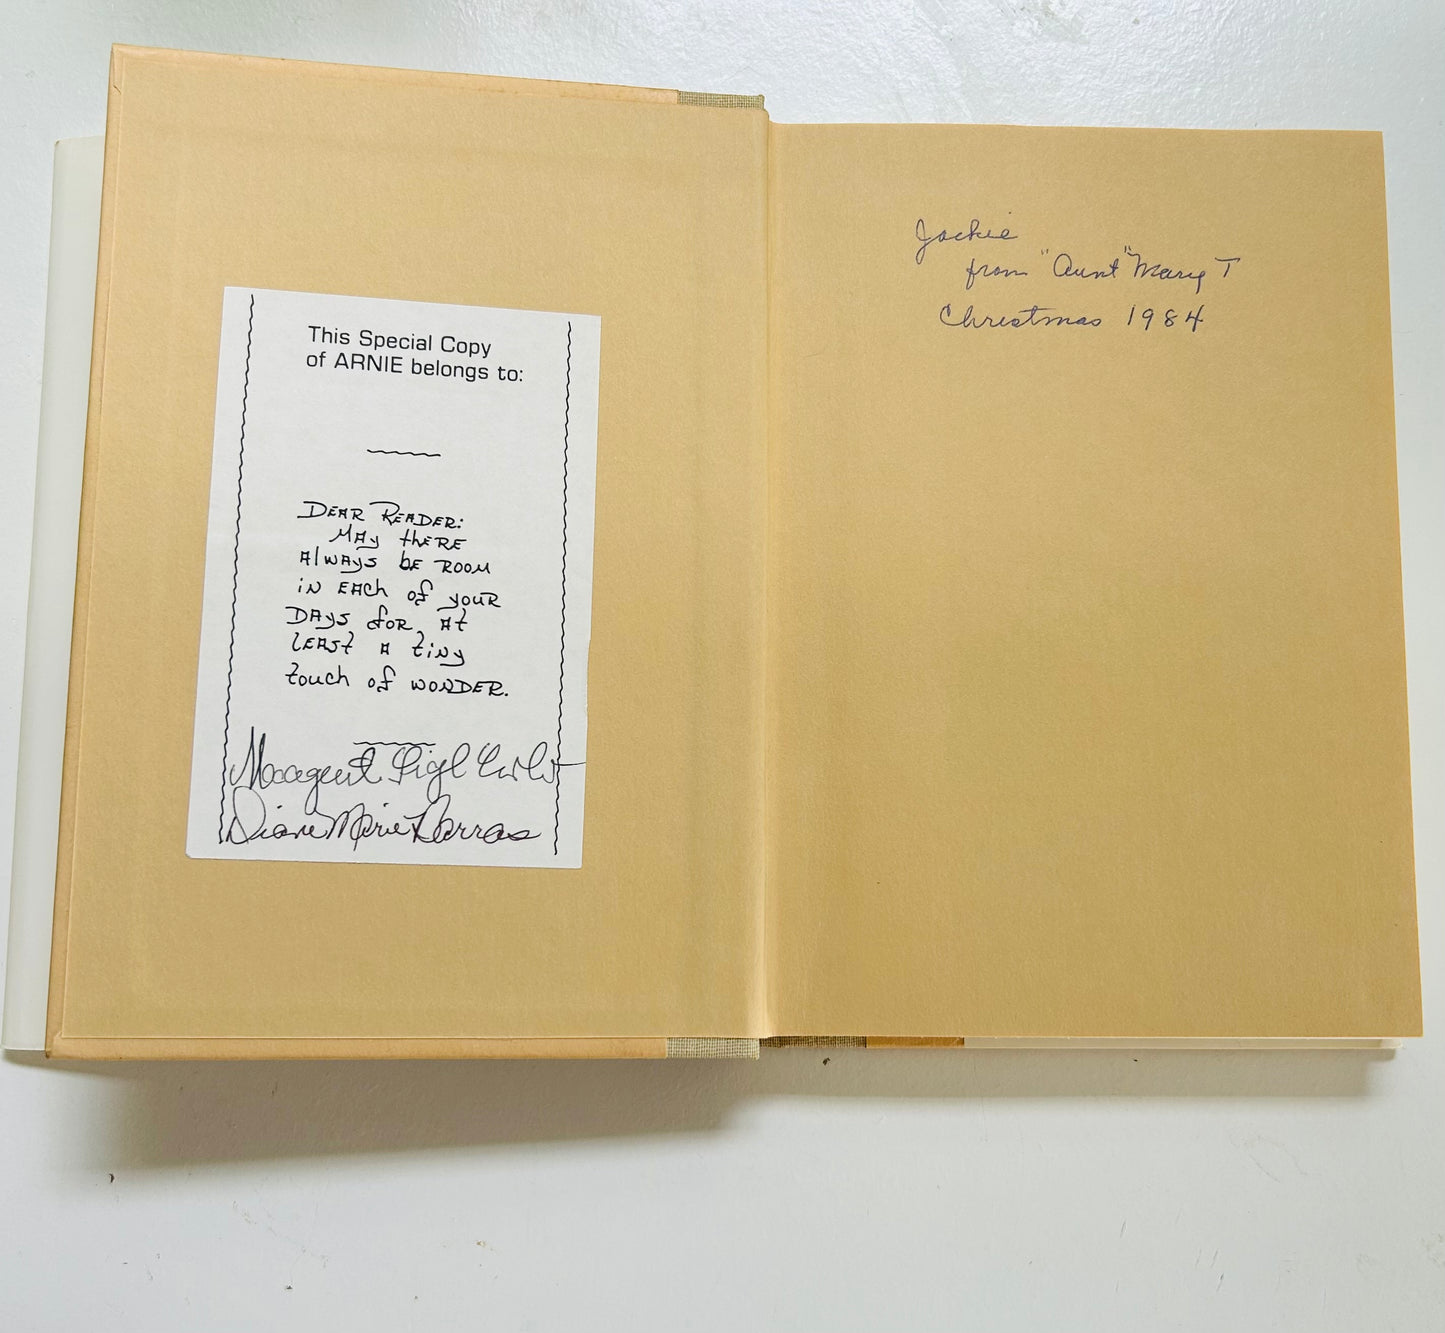 This Special Copy
of ARNIE belongs to:
DEAR READER:
MAy thERE
AlwAys bE ROOM
iN EACh of youR
DAys foR At
lEASt A tiNy
touch of woNDER.
Margaret
Diane Marie Barras
Jackie
from "Aunt" Mary T
Christmas 1984